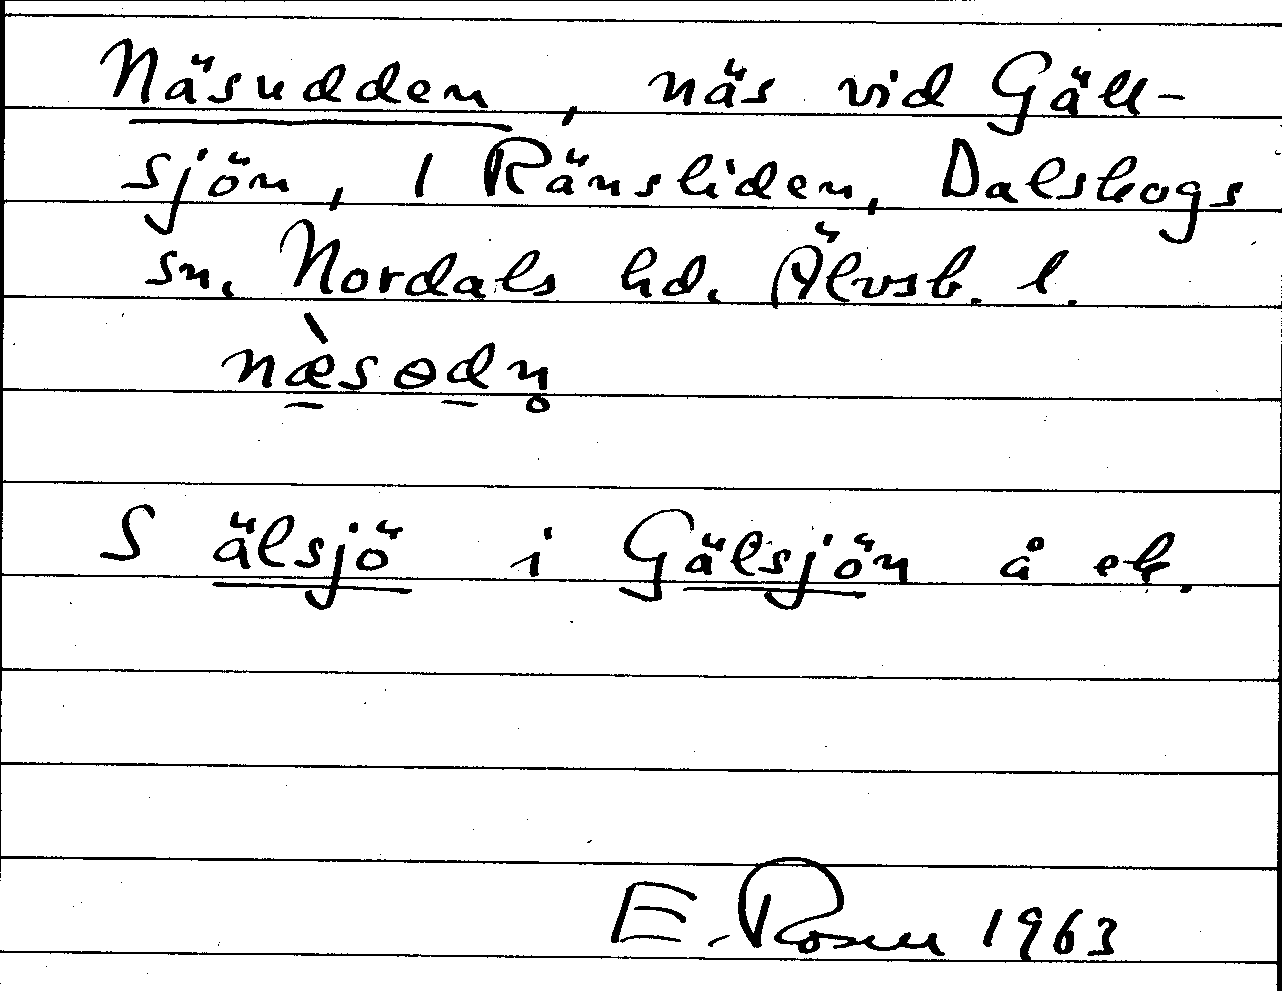 Näsudden, näs vid Gäll-
sjön, 1 Ränsliden, Dalskogs
sn. Nordals hd. Älvsb. l.
næ̀sɵdn̥
S älsjö i Gälsjön å ek.
E. Rosen 1963